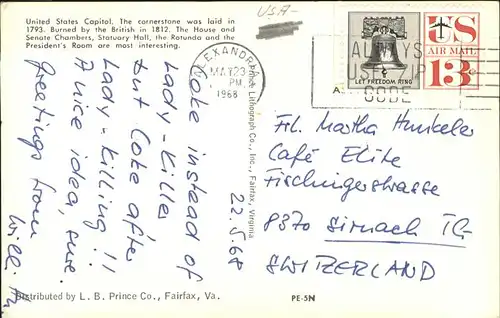 United States Capitol. The cornerstone was laid in
1793. Burned by the British in 1812. The House and
Senate Chambers, Statuary Hall, the Rotunda and the
President's Room are most interesting.
USA-
ALEXANDRIA
MAY 23
PM
1968
ALWAYS
USE ZIP
CODE
LET FREEDOM RING
US
AIR MAIL
13¢
Coke instead of
Lady-Killer,
but Coke after
Lady-Killing!!
A nice idea, sure.
Greetings from
22.5.68
Prince Lithograph Co., Inc., Fairfax, Virginia
Frl. Martha Hunkeler
Café Elite
Fischingerstrasse
8370 Sirnach TG
SWITZERLAND
Distributed by L. B. Prince Co., Fairfax, Va.
PE-5N